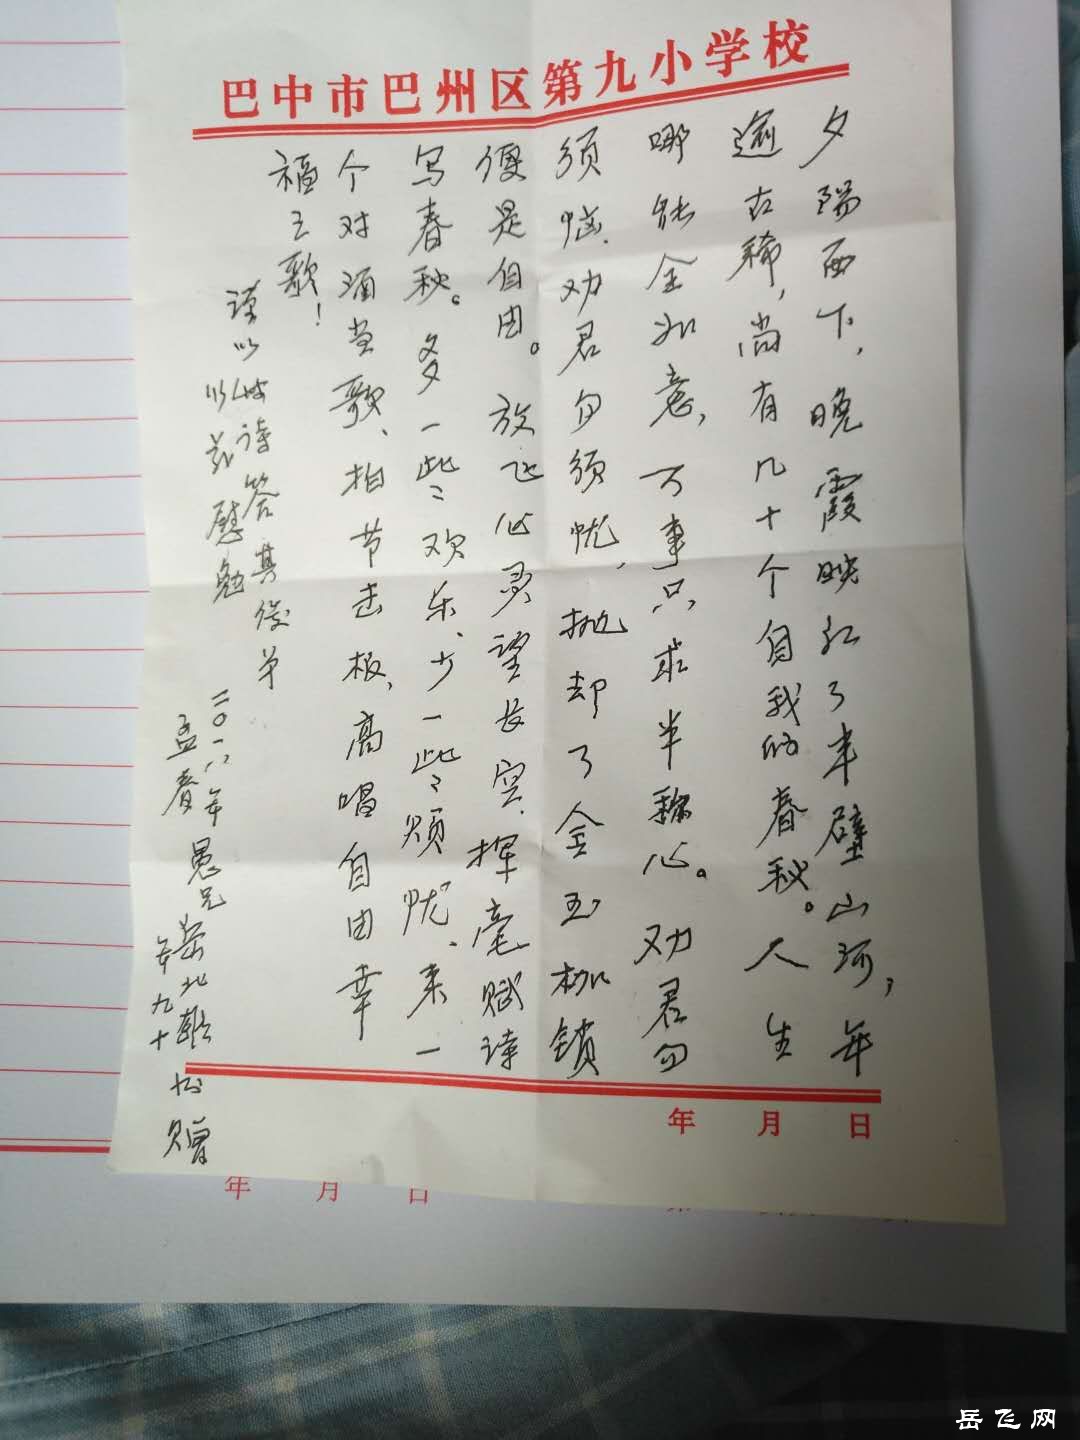 巴中市巴州区第九小学校
夕阳西下，晚霞映红了半壁山河，年
逾古稀，尚有几十个自我的春秋。人生
哪能全如意，万事只求半称心。劝君勿
须恼、劝君勿须忧，抛却了金玉枷锁
便是自由。放飞心灵望长空，挥毫赋诗
写春秋。多一些欢乐、少一些烦忧、来一
个对酒当歌、拍节击板，高唱自由幸
福之歌！
谨以此诗答其俊弟
以示慰勉
二〇一八年愚兄岳北
书赠
孟春
年九十
年 月 日
年 月 日
岳飞网